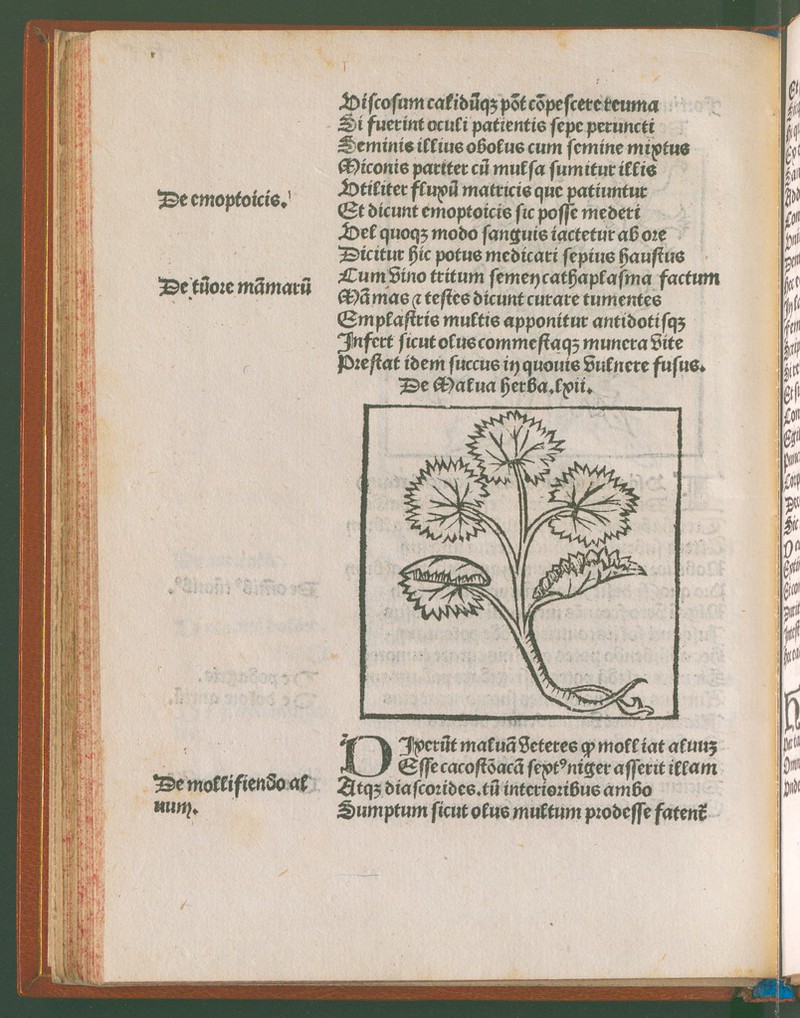 Viſcoſum calidũqȝ põt cõpeſcere reuma
Si fuerint oculi patientis ſepe peruncti
Seminis illius obolus cum ſemine mixtus
Miconis pariter cũ mulſa ſumitur illis
De emoptoicis.
Vtiliter fluxũ matricis que patiuntur
Et dicunt emoptoicis ſic poſſe mederi
Vel quoqȝ modo ſanguis iactetur ab ore
Dicitur hic potus medicari ſepius hauſtus
De tũore mãmarũ
Cum vino tritum ſemen cathaplaſma factum
Mãmas ⁊ teſtes dicunt curare tumentes
Emplaſtris multis apponitur antidotiſqȝ
Infert ſicut olus commeſtaqȝ munera vite
Preſtat idem ſuccus in quouis vulnere fuſus.
De Malua herba.lxii.
DIxerũt maluã veteres ꝙ molliat aluuȝ
Eſſe cacoſtõacã ſextꝰ niger aſſerit illam
De mollifiendo al
uum.
Atqȝ diaſcorides.tũ interioribus ambo
Sumptum ſicut olus multum prodeſſe fatent᷑